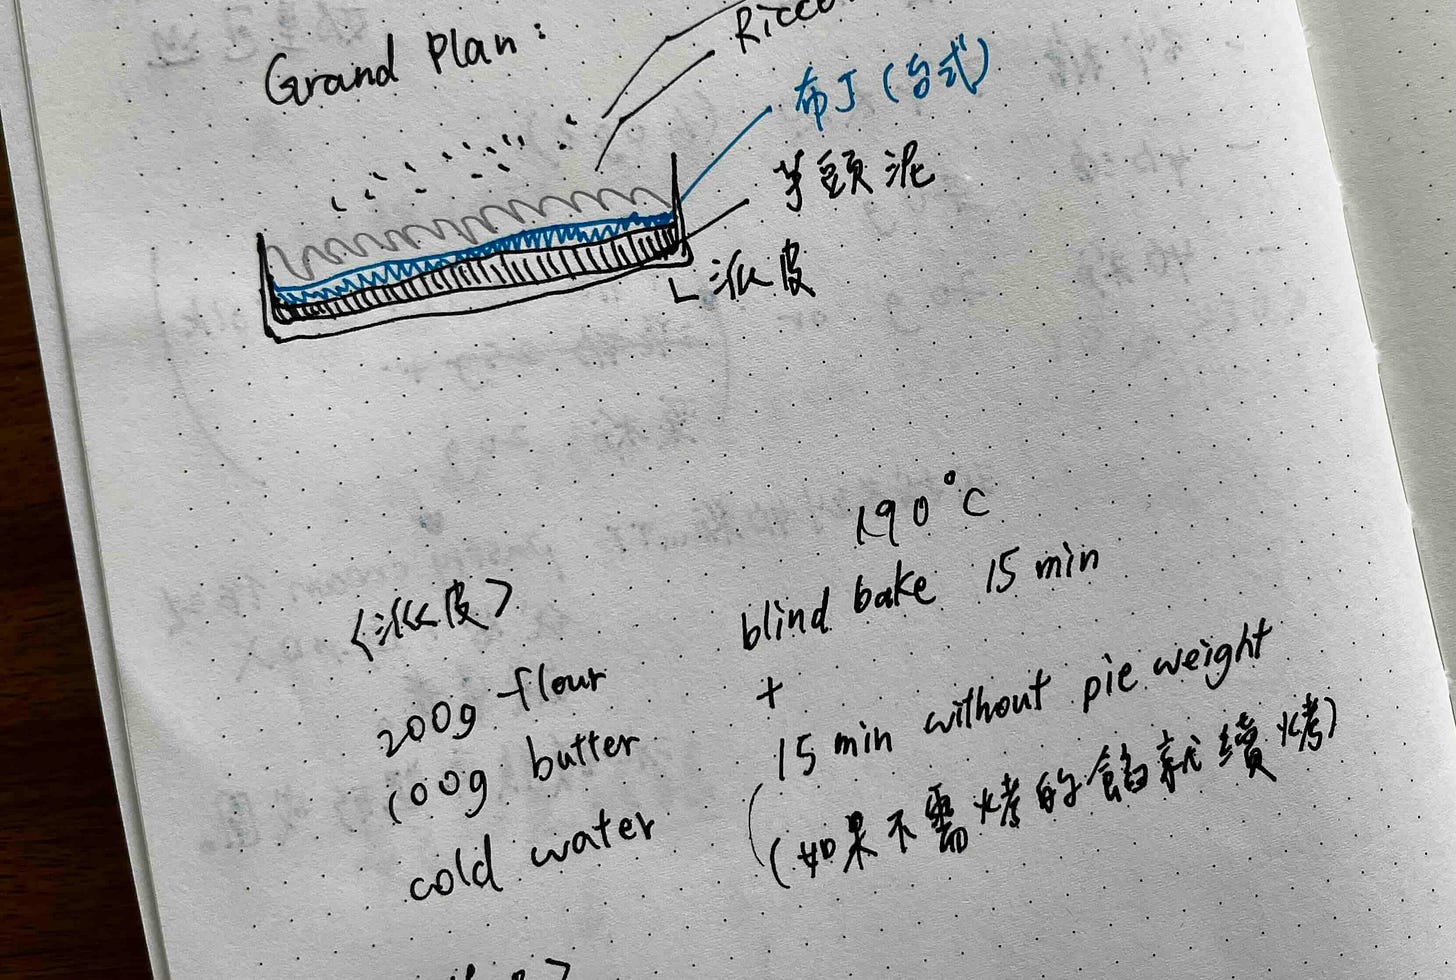 Grand Plan:
布丁(台式)
芋頭泥
派皮
190°C
blind bake 15 min
+
15 min without pie weight
(如果不需烤的餡就續烤)
<派皮>
200g flour
100g butter
cold water